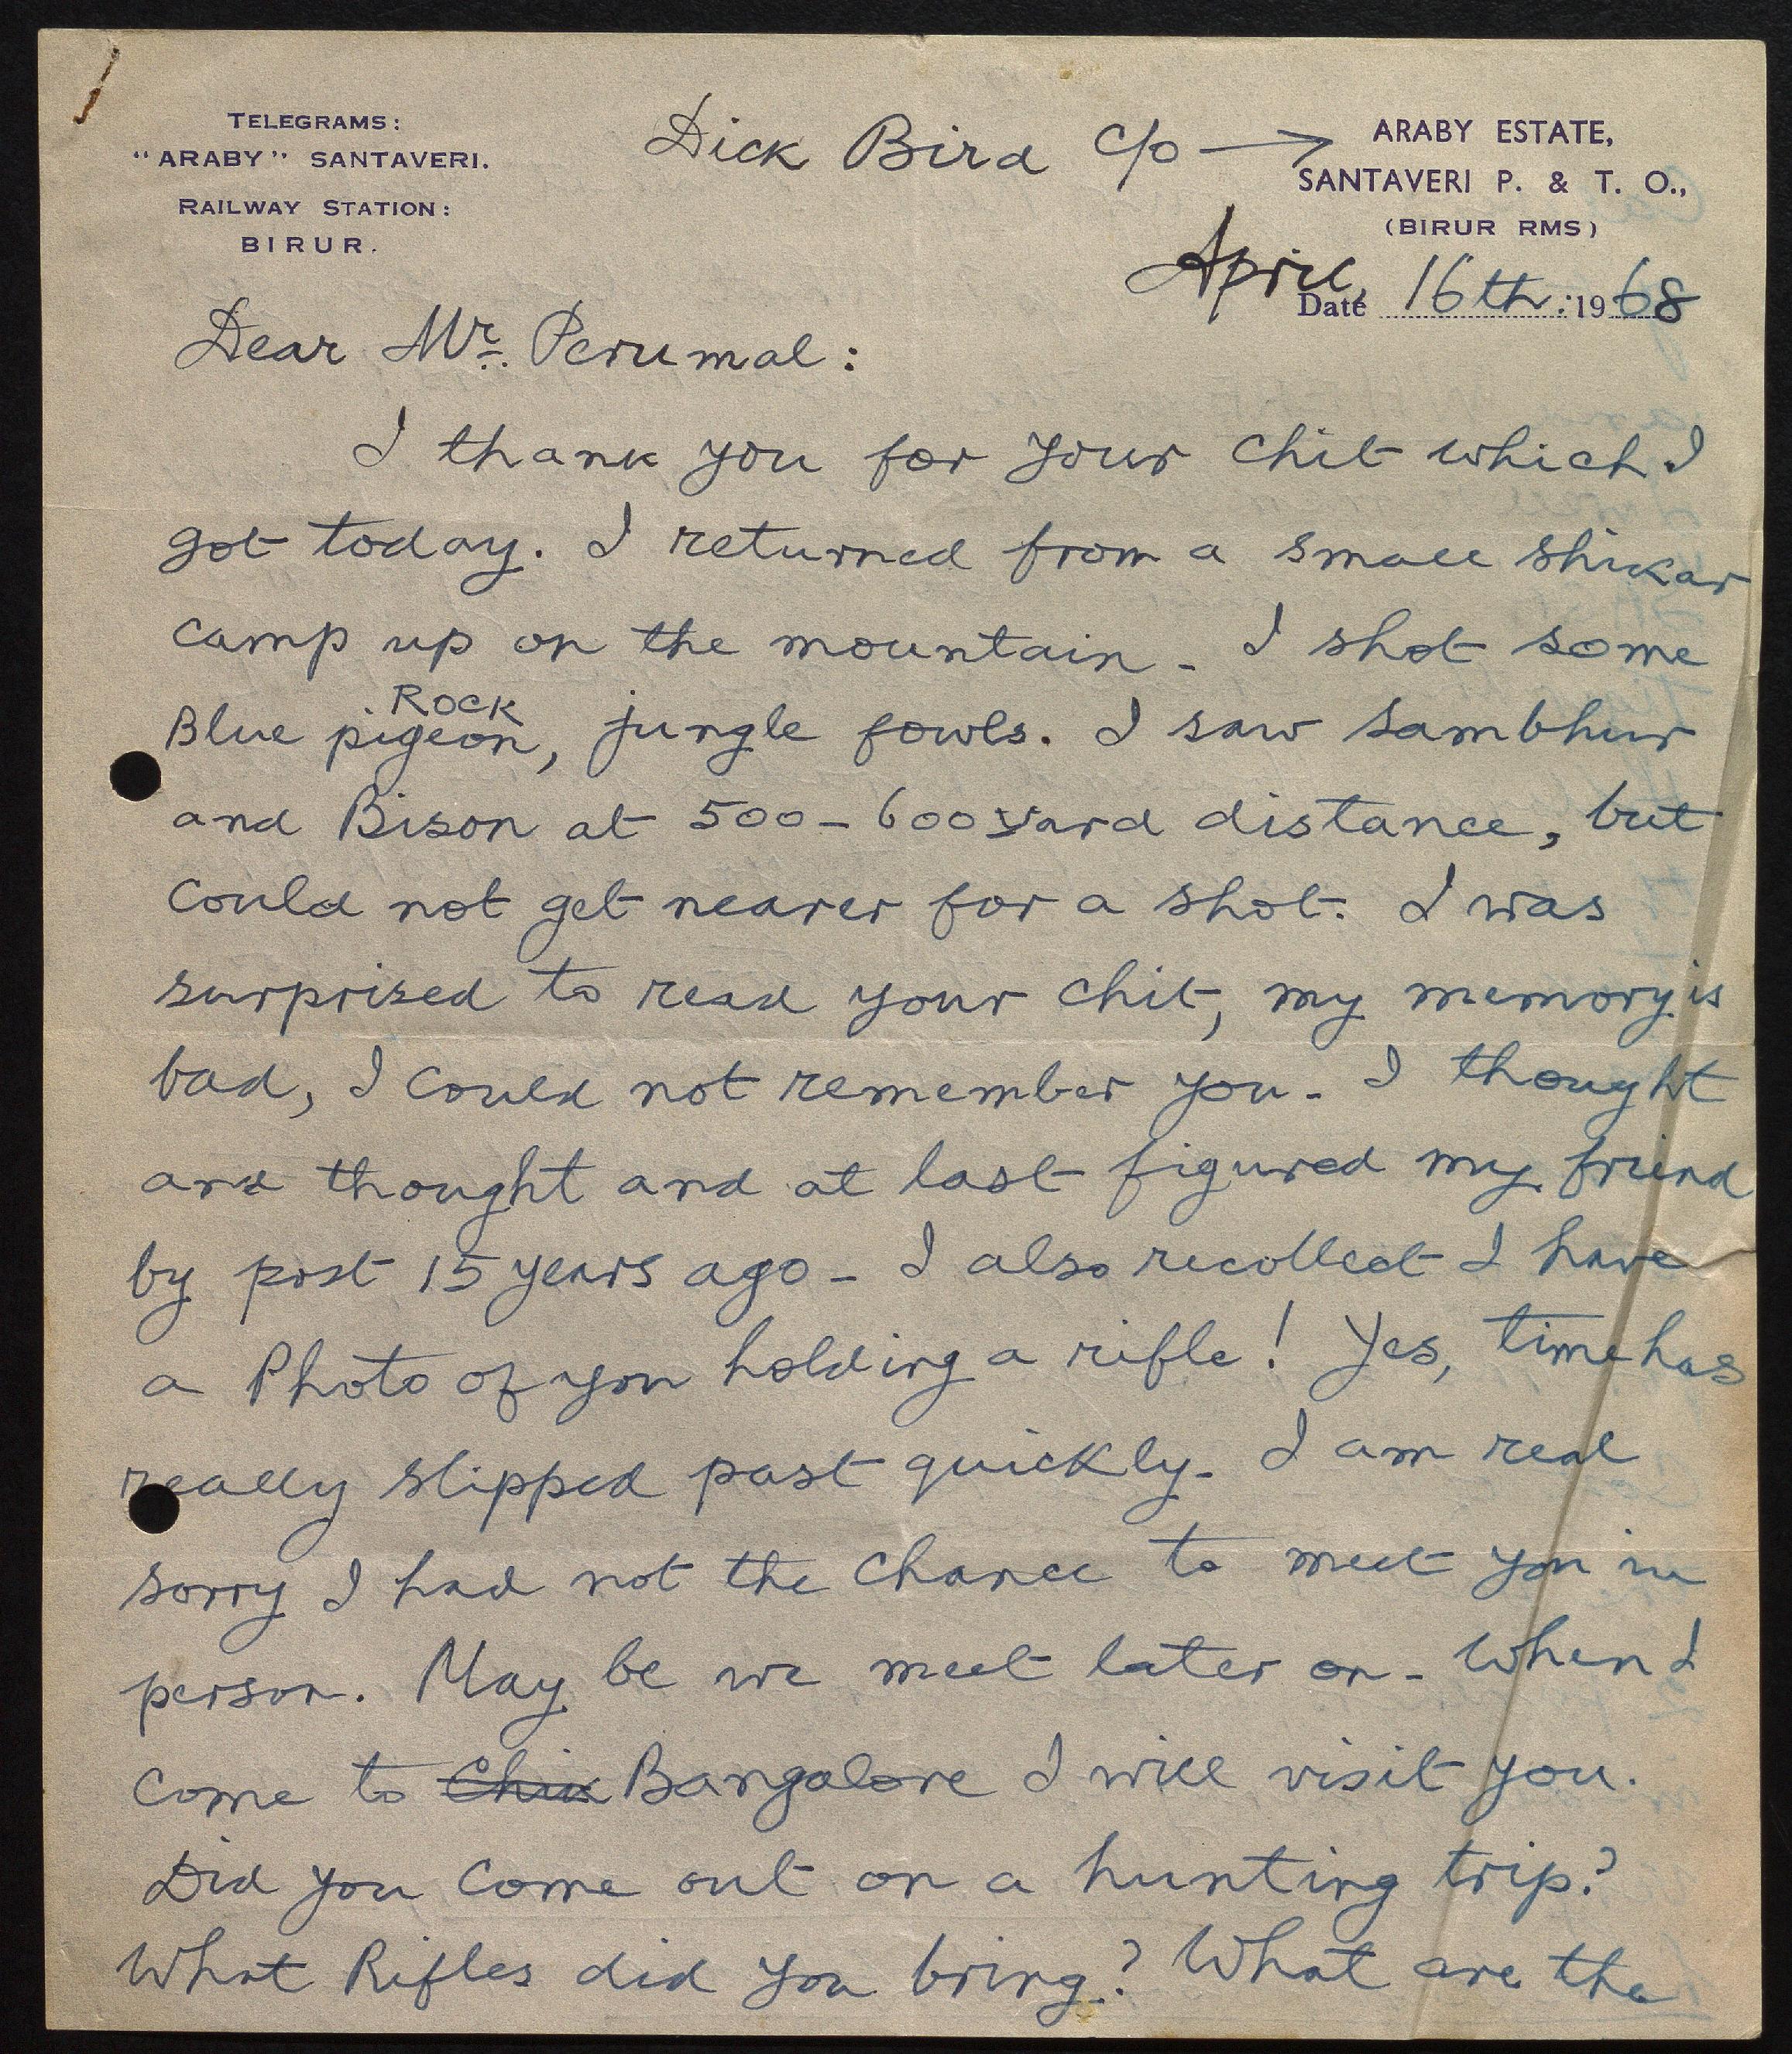 TELEGRAMS:
"ARABY" SANTAVERI.
RAILWAY STATION:
BIRUR.
Dick Bird c/o →
ARABY ESTATE,
SANTAVERI P. & T. O.,
(BIRUR RMS)
April, Date 16th. 1968
Dear Mr. Perumal:
I thank you for your chit which I
got today. I returned from a small shikar
camp up on the mountain - I shot some
Rock
Blue pigeon, jungle fowls. I saw sambhur
and Bison at 500-600 yard distance, but
could not get nearer for a shot. I was
surprised to read your chit, my memory is
bad, I could not remember you - I thought
and thought and at last figured my friend
by post 15 years ago - I also recollect I have
a Photo of you holding a rifle! Yes, time has
really slipped past quickly - I am real
sorry I had not the chance to meet you in
person. May be we meet later on - When I
come to Chik Bangalore I will visit you.
Did you come out on a hunting trip?
What Rifles did you bring? What are the